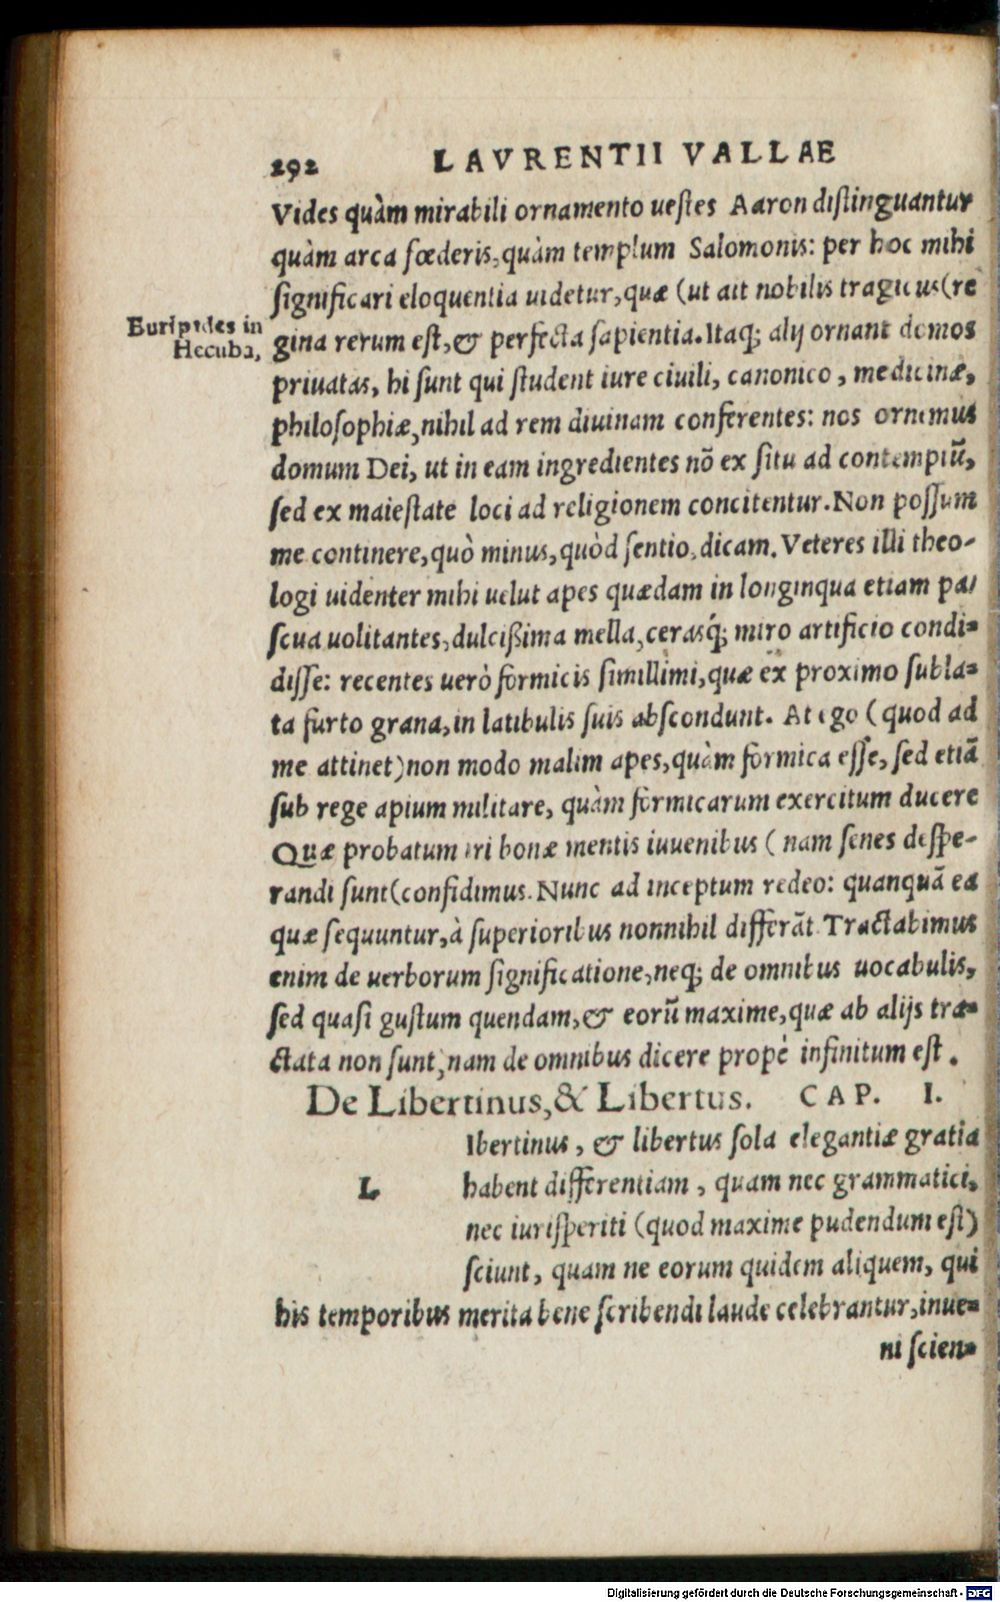 292 LAVRENTII VALLAE
Vides quàm mirabili ornamento ueſtes Aaron diſtinguantur
quàm arca fœderis, quàm templum Salomonis: per hoc mihi
ſignificari eloquentia uidetur, quæ (ut ait nobilis tragicus(re
Euripides in
Hecuba,
gina rerum eſt, & perfecta ſapientia. Itaq; alij ornant domos
priuatas, hi ſunt qui ſtudent iure ciuili, canonico, medicinæ,
philoſophiæ, nihil ad rem diuinam conferentes: nos ornemus
domum Dei, ut in eam ingredientes nõ ex ſitu ad contemptũ,
ſed ex maieſtate loci ad religionem concitentur. Non poſſum
me continere, quò minus, quòd ſentio, dicam. Veteres illi theo-
logi uidentur mihi uelut apes quædam in longinqua etiam pa-
ſcua uolitantes, dulcißima mella, cerasq́; miro artificio condi-
diſſe: recentes uerò formicis ſimillimi, quæ ex proximo ſubla-
ta furto grana, in latibulis ſuis abſcondunt. At ego (quod ad
me attinet) non modo malim apes, quàm formica eſſe, ſed etiã
ſub rege apium militare, quàm formicarum exercitum ducere
Quæ probatum iri bonæ mentis iuuenibus ( nam ſenes deſpe-
randi ſunt(confidimus. Nunc ad inceptum redeo: quanquã ea
quæ ſequuntur, à ſuperioribus nonnihil differãt. Tractabimus
enim de uerborum ſignificatione, neq; de omnibus uocabulis,
ſed quaſi guſtum quendam, & eorũ maxime, quæ ab alijs tra-
ctata non ſunt, nam de omnibus dicere propè infinitum eſt.
De Libertinus, & Libertus. CAP. I.
L Ibertinus, & libertus ſola elegantiæ gratia
habent differentiam, quam nec grammatici,
nec iuriſperiti (quod maxime pudendum eſt)
ſciunt, quam ne eorum quidem aliquem, qui
his temporibus merita bene ſcribendi laude celebrantur, inue-
ni ſcien-
Digitalisierung gefördert durch die Deutsche Forschungsgemeinschaft - DFG